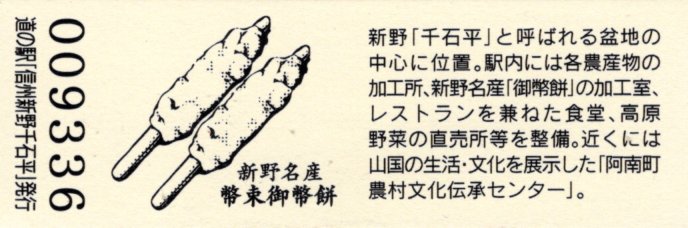 道の駅「信州新野千石平」発行
009336
新野名産
幣束御幣餅
新野「千石平」と呼ばれる盆地の
中心に位置。駅内には各農産物の
加工所、新野名産「御幣餅」の加工室、
レストランを兼ねた食堂、高原
野菜の直売所等を整備。近くには
山国の生活・文化を展示した「阿南町
農村文化伝承センター」。